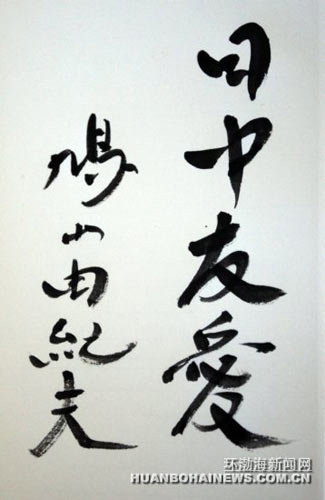 日中友愛
鳩山由紀夫
环渤海新闻网
HUANBOHAINEWS.COM.CN